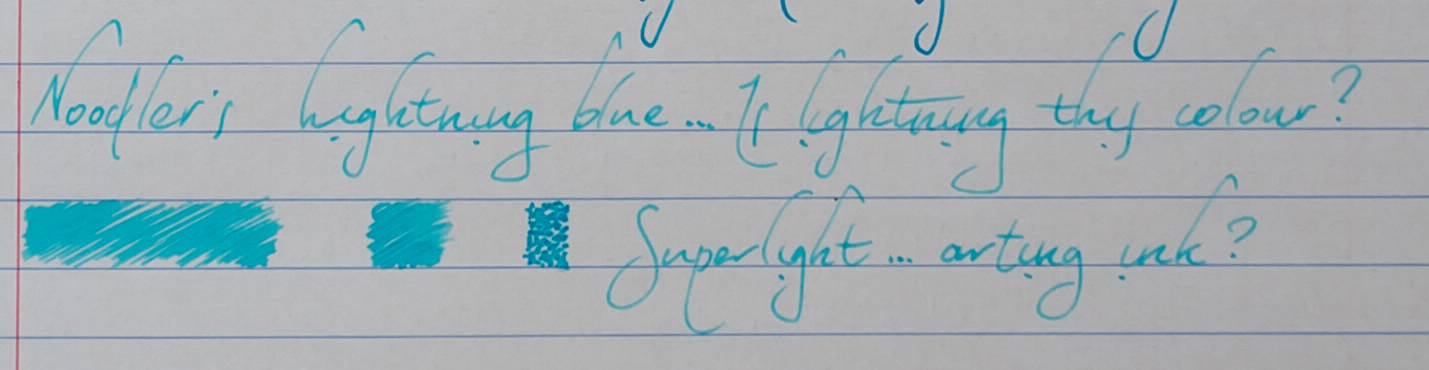 Noodler's lightning blue... Is lightning thy colour?
Superlight... arting ink?